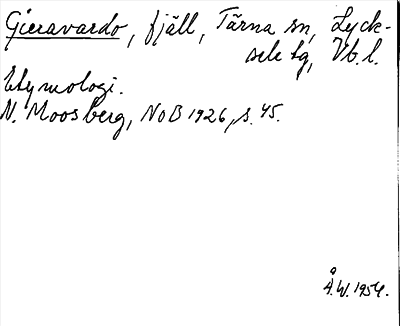 Gieravardo, fjäll, Tärna sn, Lyck-
sele tg, Vb. l.
Etymologi.
N. Moosberg, NoB 1926, s. 45.
Å. W. 1954.